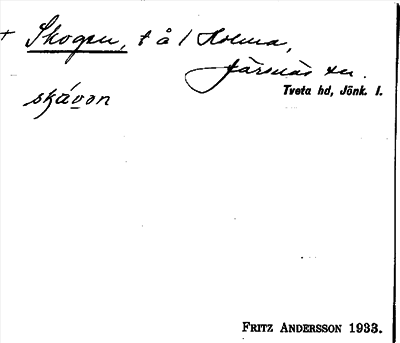 + Skogen, t å 1 Holma,
Järsnäs sn.
Tveta hd, Jönk. l.
skávon
FRITZ ANDERSSON 1933.